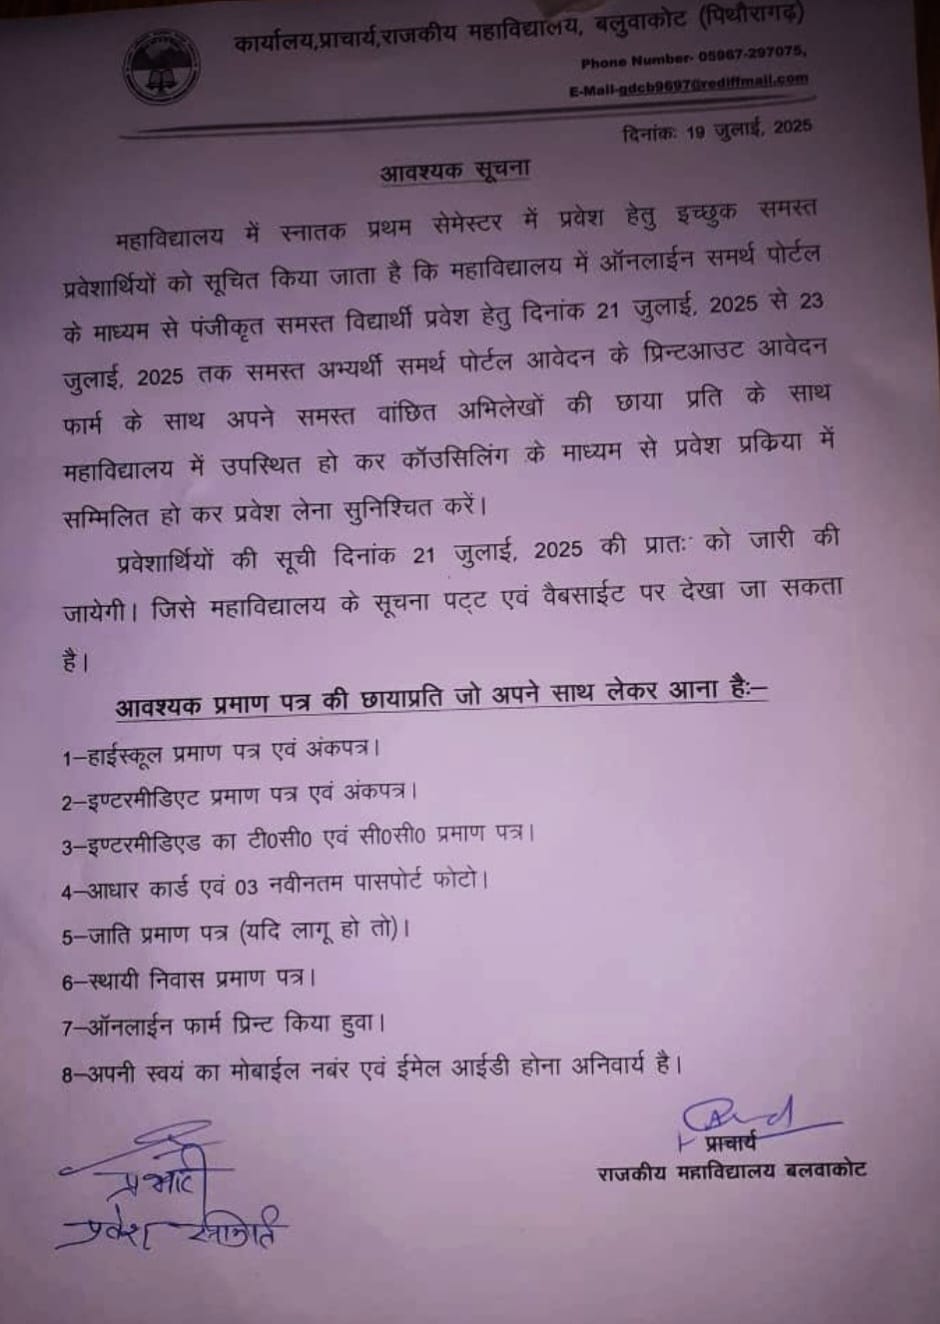 कार्यालय,प्राचार्य,राजकीय महाविद्यालय, बलुवाकोट (पिथौरागढ़)
Phone Number- 05967-297075,
E-Mail-gdcb9697@rediffmail.com
दिनांकः 19 जुलाई, 2025
आवश्यक सूचना
महाविद्यालय में स्नातक प्रथम सेमेस्टर में प्रवेश हेतु इच्छुक समस्त
प्रवेशार्थियों को सूचित किया जाता है कि महाविद्यालय में ऑनलाईन समर्थ पोर्टल
के माध्यम से पंजीकृत समस्त विद्यार्थी प्रवेश हेतु दिनांक 21 जुलाई, 2025 से 23
जुलाई, 2025 तक समस्त अभ्यर्थी समर्थ पोर्टल आवेदन के प्रिन्टआउट आवेदन
फार्म के साथ अपने समस्त वांछित अभिलेखों की छाया प्रति के साथ
महाविद्यालय में उपस्थित हो कर कॉउसिलिंग के माध्यम से प्रवेश प्रक्रिया में
सम्मिलित हो कर प्रवेश लेना सुनिश्चित करें।
प्रवेशार्थियों की सूची दिनांक 21 जुलाई, 2025 की प्रातः को जारी की
जायेगी। जिसे महाविद्यालय के सूचना पट्ट एवं वैबसाईट पर देखा जा सकता
है।
आवश्यक प्रमाण पत्र की छायाप्रति जो अपने साथ लेकर आना हैः–
1–हाईस्कूल प्रमाण पत्र एवं अंकपत्र।
2–इण्टरमीडिएट प्रमाण पत्र एवं अंकपत्र।
3–इण्टरमीडिएड का टी0सी0 एवं सी0सी0 प्रमाण पत्र।
4–आधार कार्ड एवं 03 नवीनतम पासपोर्ट फोटो।
5–जाति प्रमाण पत्र (यदि लागू हो तो)।
6–स्थायी निवास प्रमाण पत्र।
7–ऑनलाईन फार्म प्रिन्ट किया हुवा।
8–अपनी स्वयं का मोबाईल नबंर एवं ईमेल आईडी होना अनिवार्य है।
प्राचार्य
राजकीय महाविद्यालय बलवाकोट
प्रभारी
प्रवेश समिति